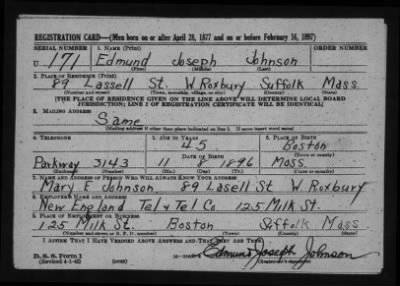 REGISTRATION CARD—(Men born on or after April 28, 1877 and on or before February 16, 1897)
SERIAL NUMBER 1. NAME (Print) ORDER NUMBER
U 171 Edmund Joseph Johnson
(First) (Middle) (Last)
2. PLACE OF RESIDENCE (Print)
89 Lasell St. W Roxbury Suffolk Mass
(Number and street) (Town, township, village, or city) (County) (State)
[THE PLACE OF RESIDENCE GIVEN ON THE LINE ABOVE WILL DETERMINE LOCAL BOARD
JURISDICTION; LINE 2 OF REGISTRATION CERTIFICATE WILL BE IDENTICAL]
3. MAILING ADDRESS
Same
[Mailing address if other than place indicated on line 2. If same insert word same]
4. TELEPHONE 5. AGE IN YEARS 6. PLACE OF BIRTH
45 Boston
DATE OF BIRTH (Town or county)
Parkway 3143 11 8 1896 Mass.
(Exchange) (Number) (Mo.) (Day) (Yr.) (State or country)
7. NAME AND ADDRESS OF PERSON WHO WILL ALWAYS KNOW YOUR ADDRESS
Mary E Johnson 89 Lasell St W. Roxbury
8. EMPLOYER'S NAME AND ADDRESS
New England Tel & Tel Co 125 Milk St.
9. PLACE OF EMPLOYMENT OR BUSINESS
125 Milk St. Boston Suffolk Mass
(Number and street or R. F. D. number) (Town) (County) (State)
I AFFIRM THAT I HAVE VERIFIED ABOVE ANSWERS AND THAT THEY ARE TRUE.
D. S. S. Form 1 Edmund Joseph Johnson
(Revised 4-1-42) (over) (Registrant's signature)